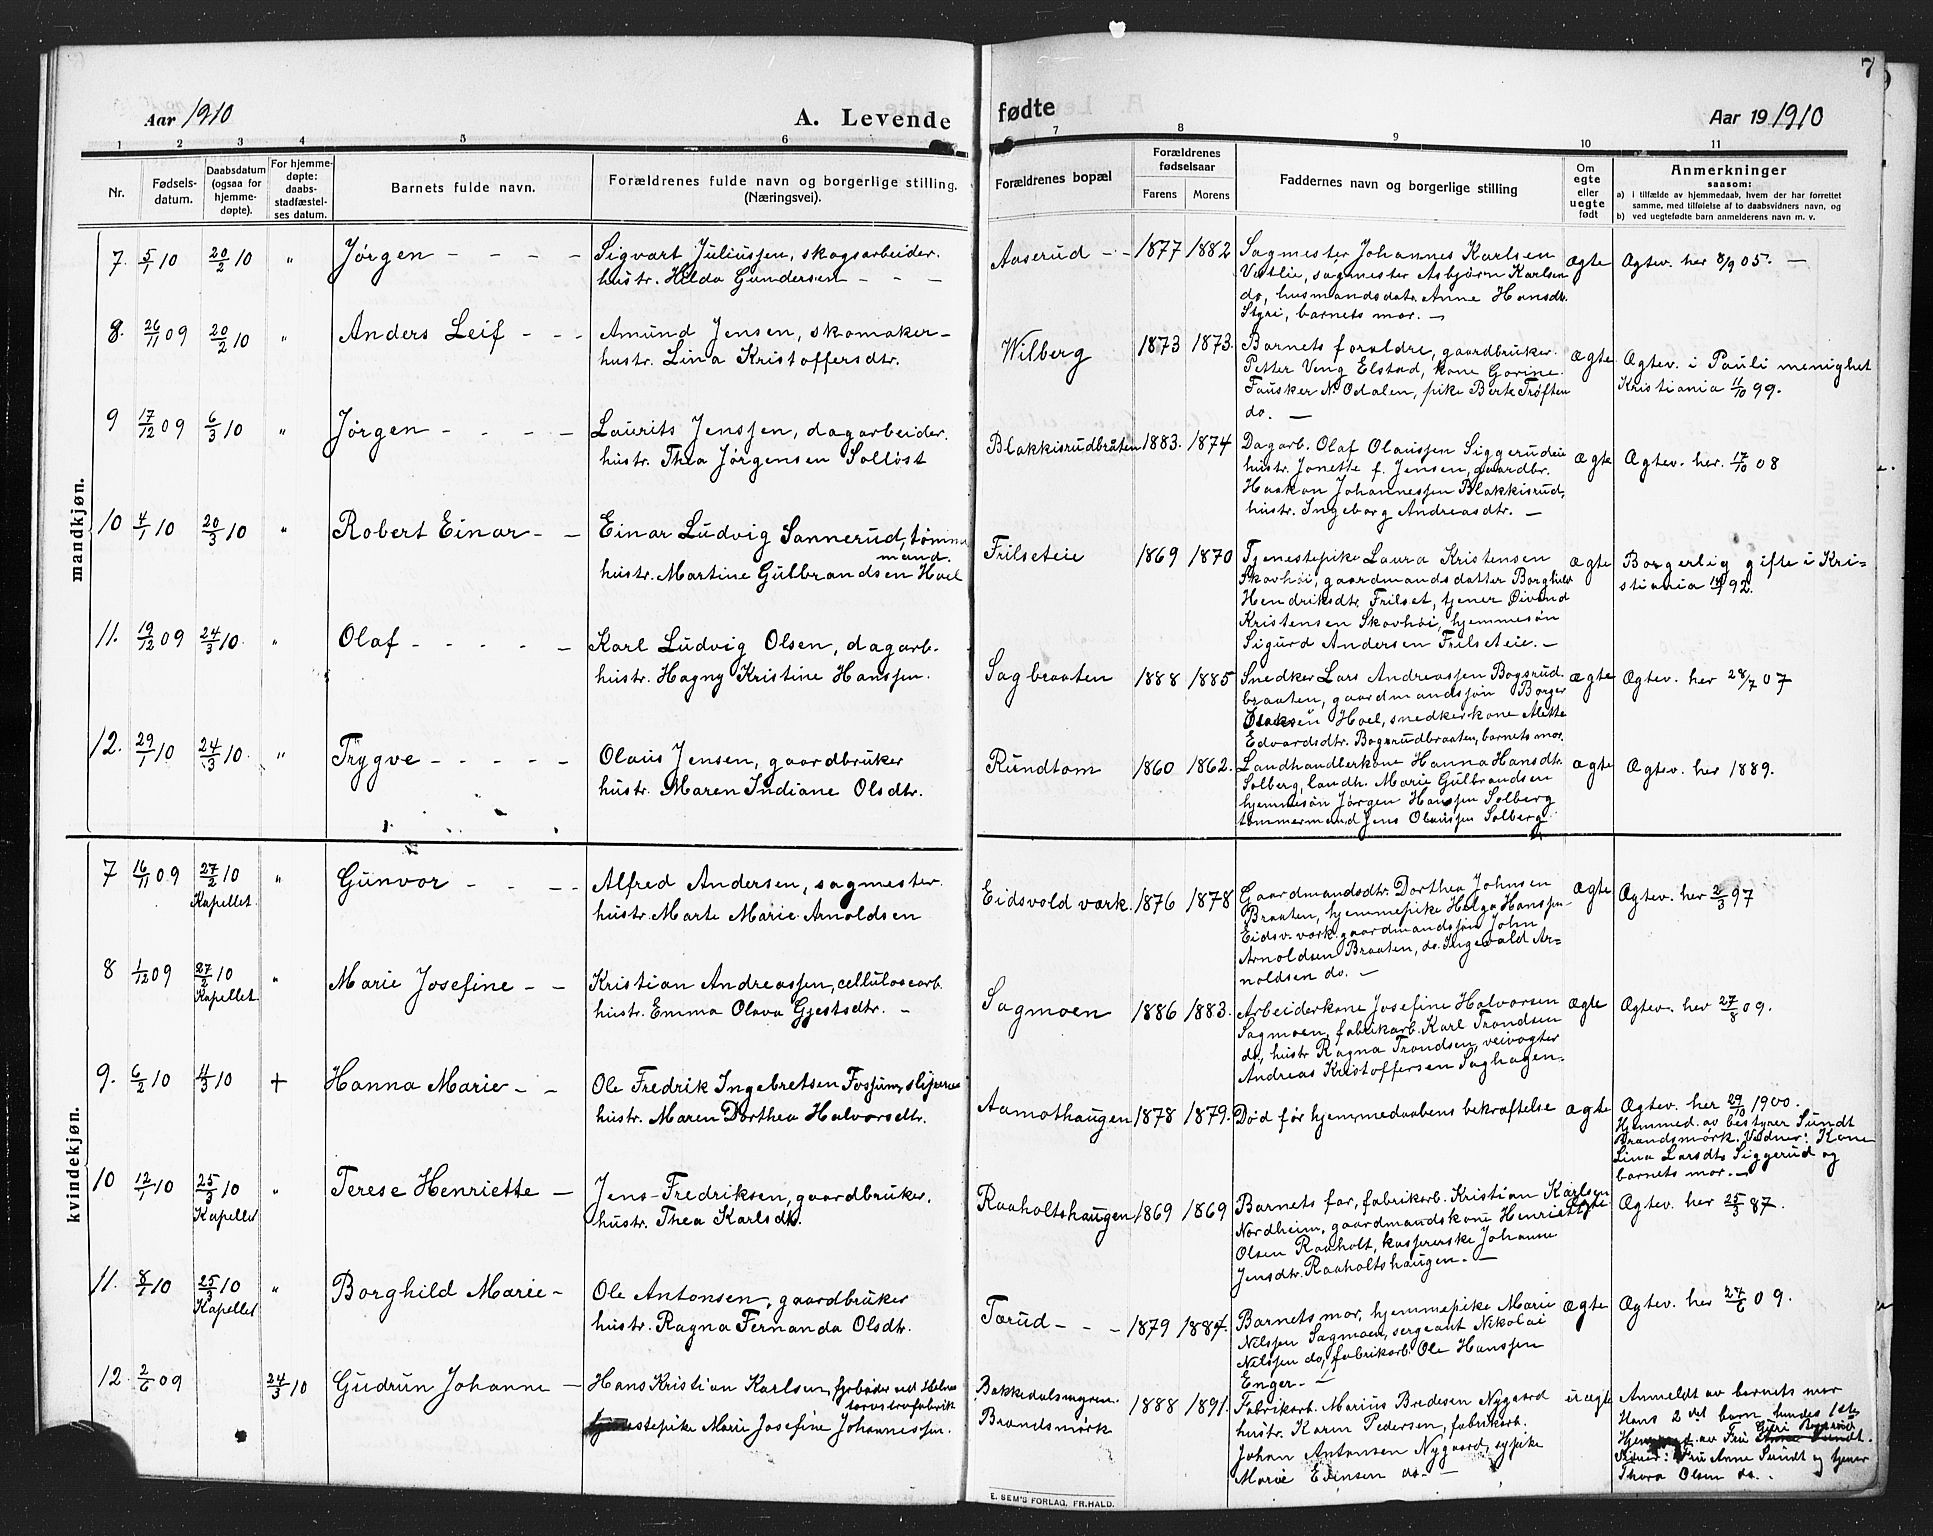 7
Aar 1910
A. Levende
fødte
Aar 19 1910
1 2 3 4 5 6 7 8 9 10 11
Nr.
Fødsels-
datum.
Daabsdatum
(ogsaa for
hjemme-
døpte).
For hjemme-
døpte:
daabs-
stadfæstel-
ses datum.
Barnets fulde navn.
Forældrenes fulde navn og borgerlige stilling.
(Næringsvei).
Forældrenes bopæl
Forældrenes
fødselsaar
Farens
Morens
Faddernes navn og borgerlige stilling
Om
egte
eller
uegte
født
Anmerkninger
saasom:
a) i tilfælde av hjemmedaab, hvem der har forrettet
samme, med tilføielse af to daabsvidners navn, og
b) ved uegtefødte barn anmelderens navn m. v.
mandkjøn.
7. 5/1 10 20/2 10 " Jørgen - - - -
Sigvart Juliussen, skogsarbeider.
hustr. Hilda Gundersen - - -
Aaserud - - 1877 1882
Sagmester Johannes Karlsen
Vestlie, sagmester Asbjørn Karlsen
do, husmandsdatr. Anne Hansdtr.
Styri, barnets mor. -
ægte
Ægtev. her 8/9 05. -
8. 26/11 09 20/2 10 " Anders Leif - - -
Amund Jensen, skomaker -
hustr. Lina Kristoffersdtr.
Wilberg 1873 1873.
Barnets forældre, gaardbruker.
Petter Veng Elstad, kone Gorine
Fausker N. Odalen, pike Berte Trøften
do. -
ægte
Ægtev. i Pauli menighet
Kristiania 11/10 99.
9 17/12 09 6/3 10 " Jørgen - - - -
Laurits Jenssen, dagarbeider.
hustr. Thea Jørgensen Solløst
Blakkisrudbraaten 1883. 1874
Dagarb. Olaf Olaussen Siggerudeie
hustr. Jonette f. Jensen, gaardbr.
Haakon Johannessen Blakkisrud,
hustr. Ingeborg Andreasdtr. -
ægte
Ægtev. her. 17/10 08
10 4/1 10 20/3 10 " Robert Einar - -
Einar Ludvig Sannerud, tømmer
mand.
hustr. Martine Gulbrandsen Hoel
Frilseteie 1869 1870
Tjenestepike Laura Kristensen
Skovhøi, gaardmandsdatter Borghild
Hendriksdtr. Frilset, tjener Øivind
Kristensen Skovhøi, hjemmesøn
Sigurd Andersen Frilseteie. -
ægte
Borgerlig gifte i Kri-
stiania 92.
11. 19/12 09 24/3 10. " Olaf - - - - -
Karl Ludvig Olsen, dagarb.
hustr. Hagny Kristine Hanssen.
Sagbraaten 1888 1885
Snedker Lars Andreassen Bogsrud-
braaten, gaardmandssøn Borger
Hoel, snedkerkone Alette
Edvardsdtr. Bogsrudbraaten, barnets mor.
ægte
Ægtev. her 28/7 07
12. 29/1 10 24/3 10. " Trygve - - - - -
Olaus Jensen, gaardbruker
hustr. Maren Indiane Olsdtr.
Rundtom 1860 1862.
Landhandlerkone Hanna Hansdtr.
Solberg, landh. Marie Gulbrandsen
hjemmesøn Jørgen Hanssen Solberg
tømmermand Jens Olaussen Solberg
ægte
Ægtev. her 1889.
kvindekjøn.
7 16/11 09 27/2 10 " Gunvor - - - -
Kapellet.
Alfred Andersen, sagmester.
hustr. Marte Marie Arnoldsen
Eidsvold værk. 1876 1878
Gaardmandsdtr. Dorthea Johnsen
Braaten, hjemmepike Helga Hanssen
Eidsv. værk. gaardmandssøn John
Arnoldsen Braaten, do. Ingevald Ar-
noldsen do. -
ægte
Ægtev. her 2/3 97
8 1/12 09 27/2 10 " Marie Josefine - -
Kapellet
Kristian Andreassen, cellulosearb.
hustr. Emma Olava Gjestsdtr. -
Sagmoen 1886 1883.
Arbeiderkone Josefine Halvorsen
Sagmoen, fabrikarb. Karl Trondsen
do, hustr. Ragna Trondsen, veivogter
Andreas Kristoffersen Saghagen.
ægte
Ægtev. her 27/8 09.
9. 6/2 10 4/3 10 + Hanna Marie - -
Ole Fredrik Ingebretsen Fossum,
hustr. Maren Dorthea Halvorsdtr.
Aamothaugen 1878 1879.
Død før hjemmedaabens bekræftelse
ægte
Ægtev. her 29/10 1900.
Hjemmed. av bestyrer Sundt
Brandsmörk. Vidner: Kone
Lina Larsdtr. Siggerud og
barnets mor. -
10 12/1 10 25/3 10 " Terese Henriette -
Kapellet
Jens Fredriksen, gaardbruker.
hustr. Thea Karlsdtr.
Raaholtshaugen 1869 1869
Barnets far, fabrikarb. Kristian Karlsen
Nordheim, gaardmandskone Henriette
Olsen Raaholt, Johanne
Jensdtr. Raaholtshaugen. -
ægte
Ægtev. her 25/3 87.
11. 8/1 10 25/3 10 " Borghild Marie -
Kapellet
Ole Antonsen, gaardbruker
hustr. Ragna Fernanda Olsdtr.
Tærud - - - 1879 1884.
Barnets mor, hjemmepike Marie
Nilssen Sagmoen, sergeant Nikolai
Nilssen do, fabrikarb. Ole Hanssen
Enger. -
ægte
Ægtev. her 24/6 09.
12. 2/6 09 24/3 10 Gudrun Johanne -
Hans Kristian Karlsen, fyrbøder ved
torvstrøfabrik
tjenestepike Marie Josefine Johannessen.
Bakkedalsmyren
Brandsmörk 1888 1891.
Fabrikarb. Marius Bredesen Nygaard
hustr. Karen Pedersen, fabrikarb.
Johan Antonsen Nygaard, sypike
Marie Evensen do. -
uægte
Anmeldt av barnets mor
Hans 2det barn, hendes 1ste
Hjemmed. av Fru
Vidner: Fru Anne Sundt og tjener
Thora Olsen do. -
E. SEM'S FORLAG, FR.HALD.